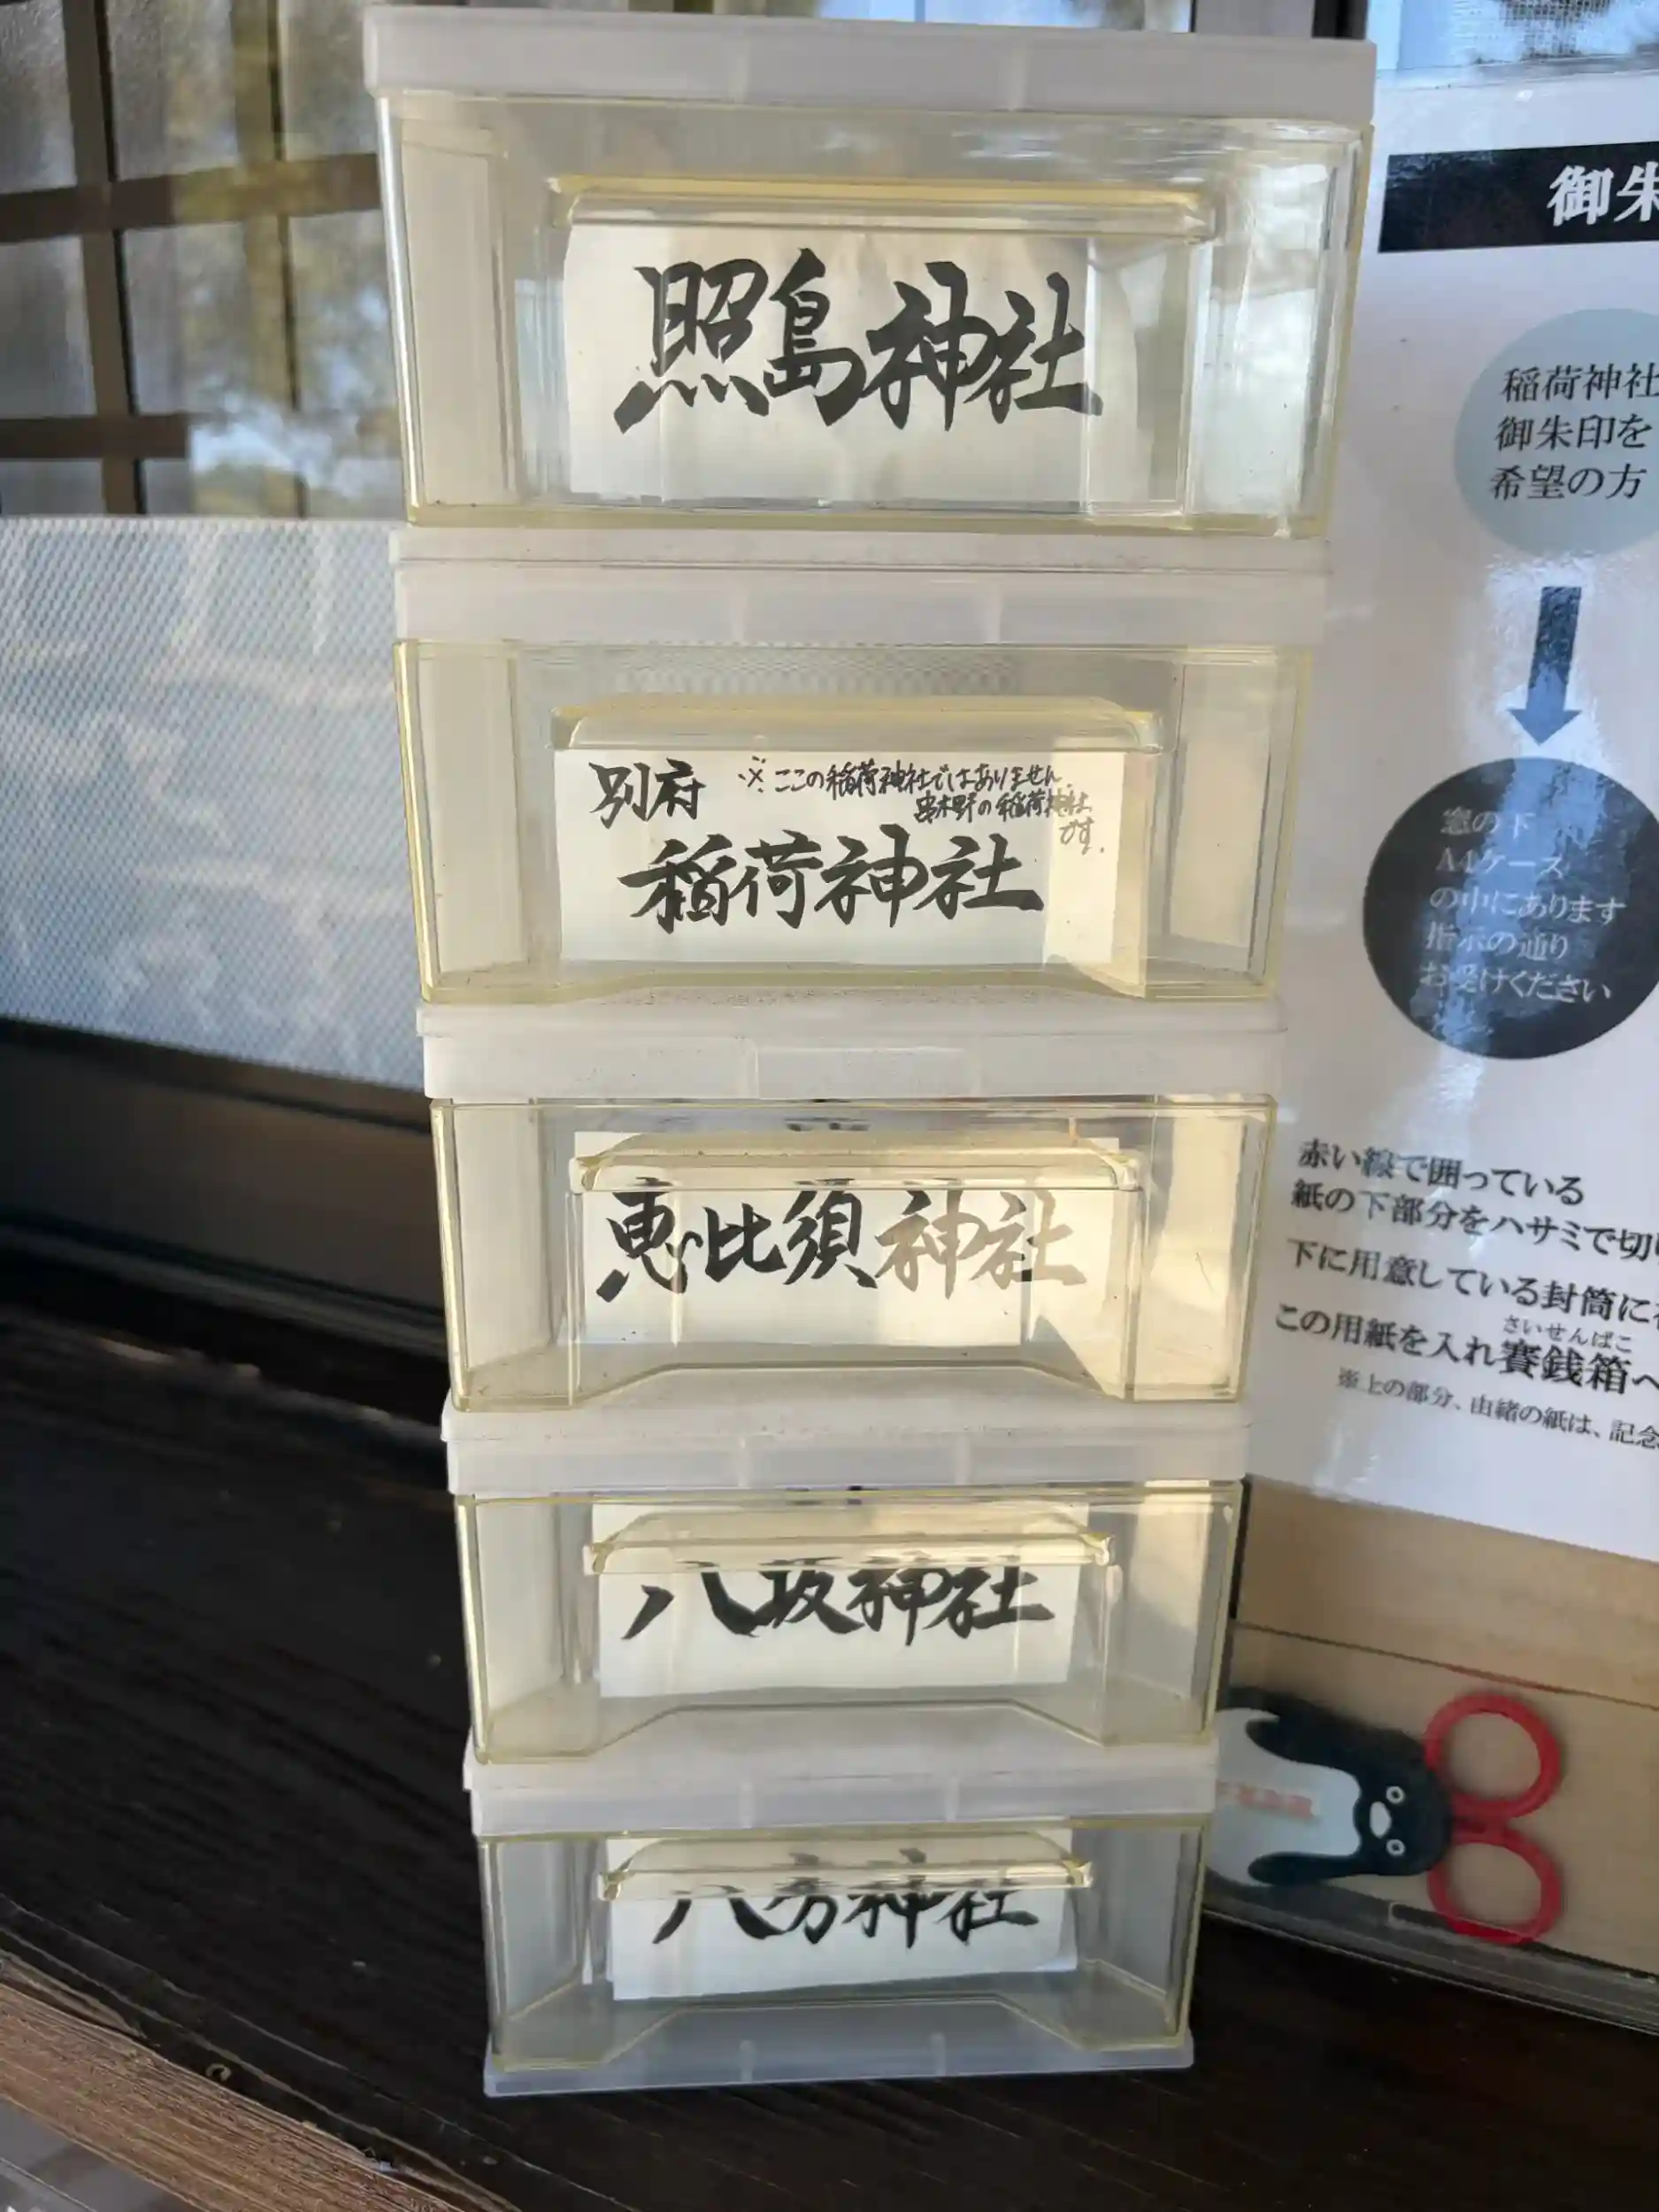 照島神社
別府
※ここの稲荷神社ではありません。
串木野の稲荷神社
です。
稲荷神社
恵比須神社
八坂神社
八房神社
御朱
稲荷神社
御朱印を
希望の方
窓の下
A4ケース
の中にあります
指示の通り
お受けください
赤い線で囲っている
紙の下部分をハサミで切り
下に用意している封筒に
さいせんばこ
この用紙を入れ賽銭箱へ
※上の部分、由緒の紙は、記念